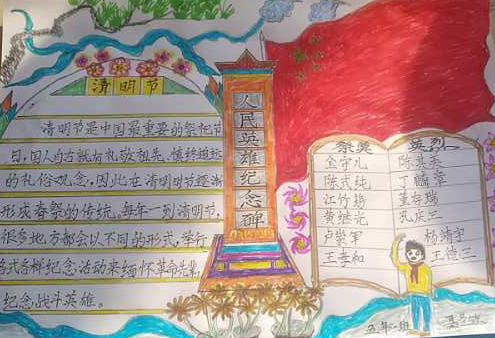 清明节
清明节是中国最重要的祭祀节
日,国人自古就有礼敬祖先、慎终追远
的礼俗观念,因此在清明时节逐渐
形成春祭的传统,每年一到清明节,
很多地方都会以不同的形式,举行
各式各样纪念活动来缅怀革命先辈,
纪念战斗英雄。
人民英雄纪念碑
祭奠 英烈
陈式纯 丁麟章
江竹筠 董存瑞
黄继光 孔庆三
卢崇军 杨靖宇
王孝和 王德三
五年一班